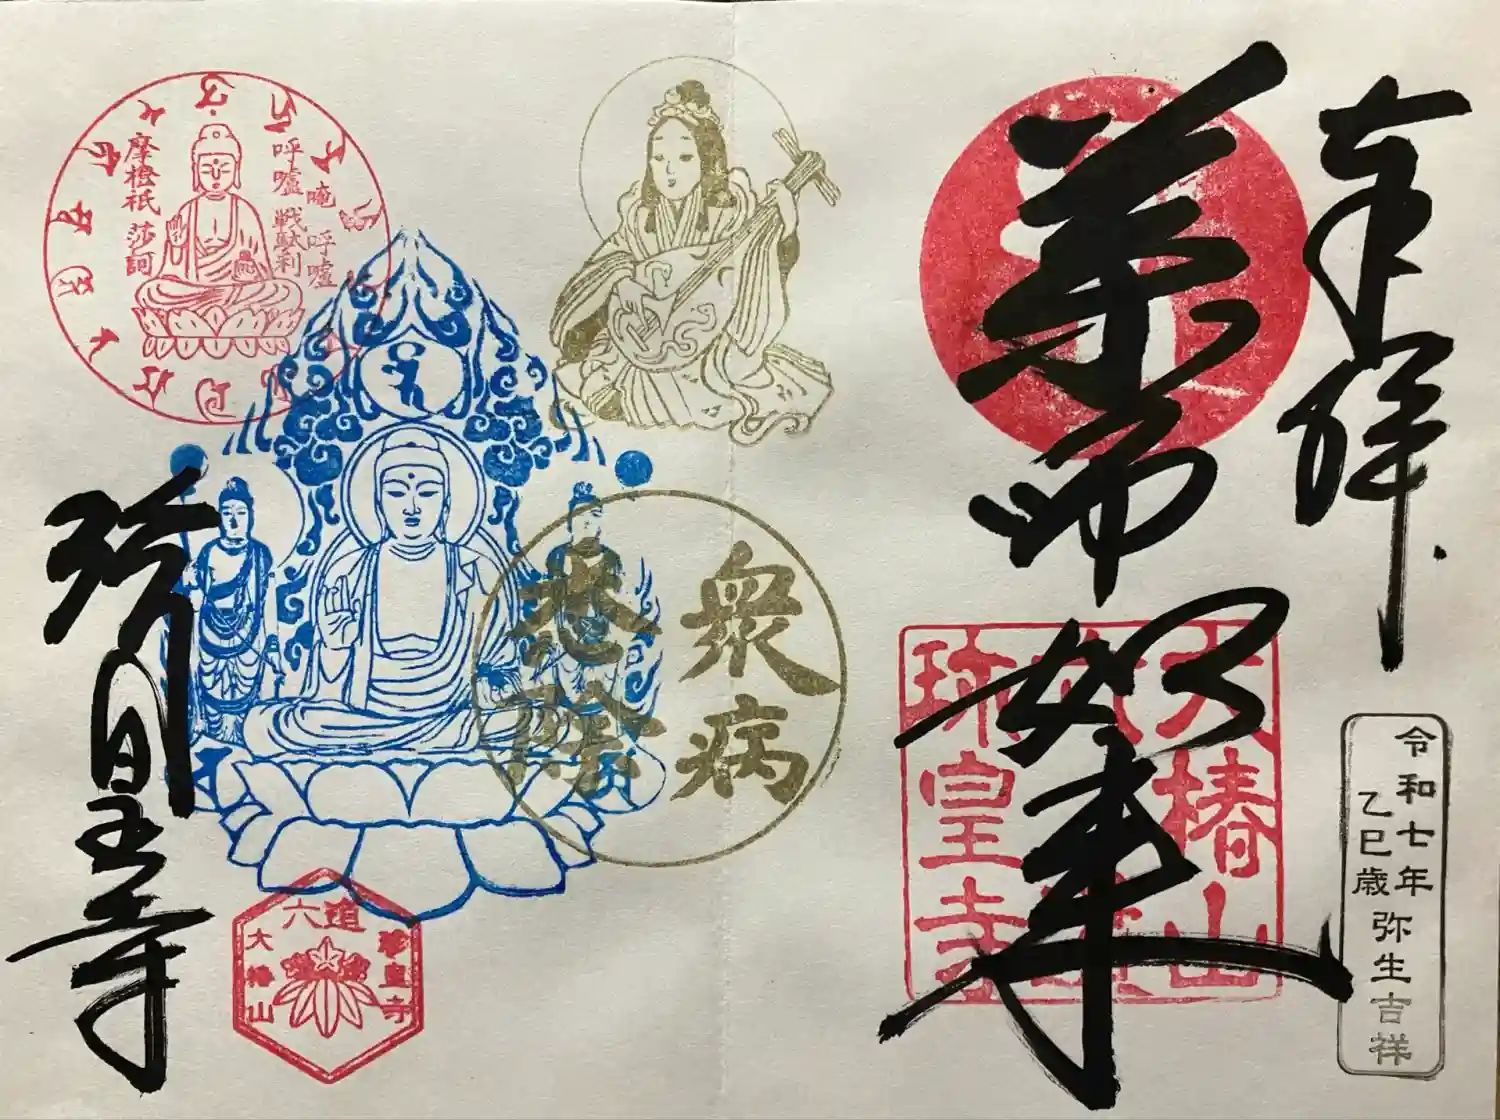 奉拝
令和七年
乙巳歳 弥生吉祥
薬師如来
大椿山
珍皇寺
衆病
悉除
唵 呼嚧
呼嚧 戦駄利
摩橙祇 莎訶
六道
珍皇寺
大椿山
珍皇寺